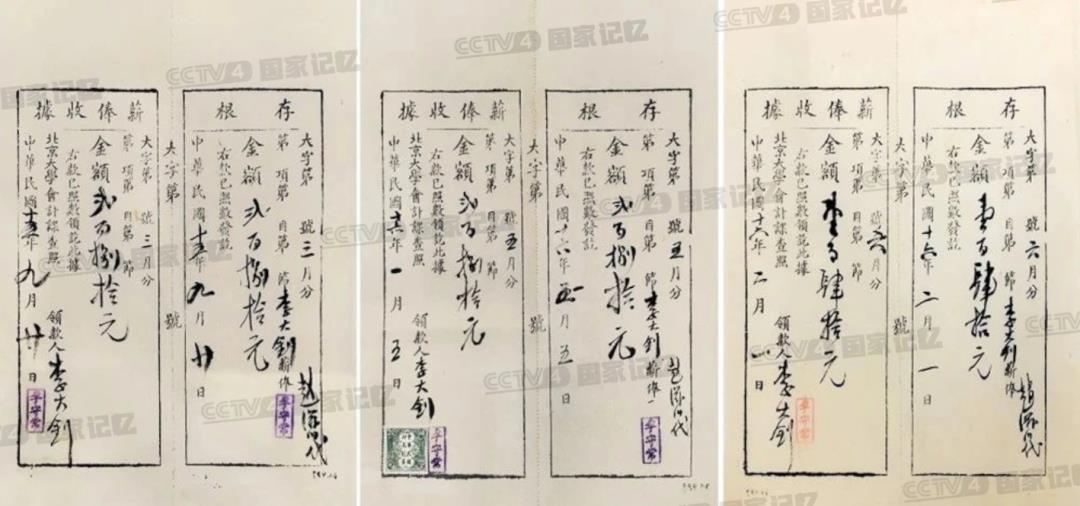 存根
大字第 號三月分
第 項第 目第 節李大釗薪俸
金額弍百捌拾元
右款已照數發訖
中華民國十五年九月廿日
趙添代
李守常
大字第 號
薪俸收據
大字第 號三月分
第 項第 目第 節
金額弍百捌拾元
右款已照數領訖此據
北京大學會計課查照
領款人李大釗
李守常
中華民國十五年九月廿日
存根
大字第 號五月分
第 項第 目第 節李大釗薪俸
金額弍百捌拾元
右款已照數發訖
中華民國十六年 月五日
李守常
大字第 號
薪俸收據
大字第 號五月分
第 項第 目第 節
金額弍百捌拾元
右款已照數領訖此據
北京大學會計課查照
領款人李大釗
李守常
中華民國十六年一月五日
存根
大字第 號六月分
第 項第 目第 節李大釗薪俸
金額壹百肆拾元
右款已照數發訖
中華民國十六年二月一日
大字第 號
薪俸收據
大字第 號六月分
第 項第 目第 節
金額壹百肆拾元
右款已照數領訖此據
北京大學會計課查照
領款人李大釗
李守常
中華民國十六年二月一日
CCTV4 国家记忆